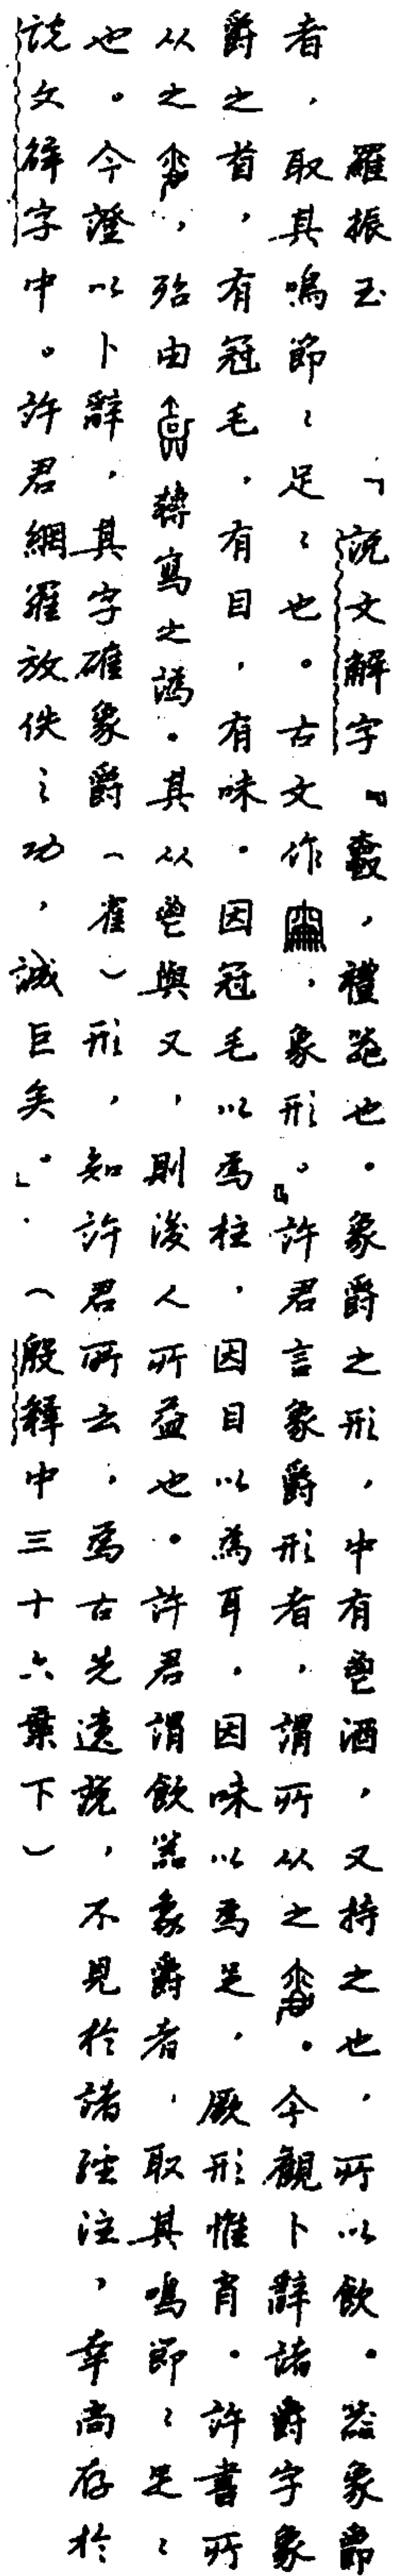 羅振玉　「說文解字『爵，禮器也。象爵之形，中有鬯酒，又持之也，所以飲。器象爵
者，取其鳴節〻足〻也。古文作，象形。』許君言象爵形者，謂所从之。今觀卜辭諸爵字象
爵之首，有冠毛，有目，有咮。因冠毛以為柱，因目以為耳，因咮以為足，厥形惟肖。許書所
从之，殆由轉寫之譌。其从鬯與又，則後人所益也。許君謂飲器象爵者，取其鳴節〻足〻
也。今證以卜辭，其字確象爵（雀）形，知許君所云，為古先遺說，不見於諸經注，幸尚存於
說文解字中。許君網羅放佚之功，誠巨矣。」（殷釋中三十六葉下）